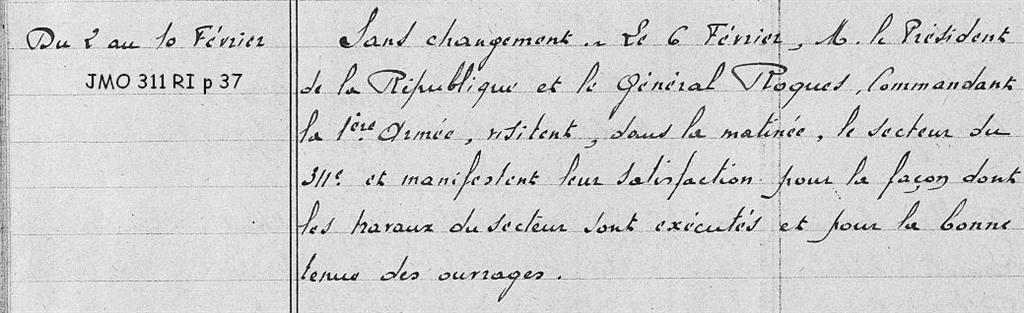 Du 2 au 10 Février
JMO 311 RI p 37
Sans changement. ~ Le 6 Février, M. le Président
de la République et le Général Roques, Commandant
la 1ère Armée, visitent, dans la matinée, le secteur du
311e et manifestent leur satisfaction pour la façon dont
les travaux du secteur sont exécutés et pour la bonne
tenue des ouvrages.